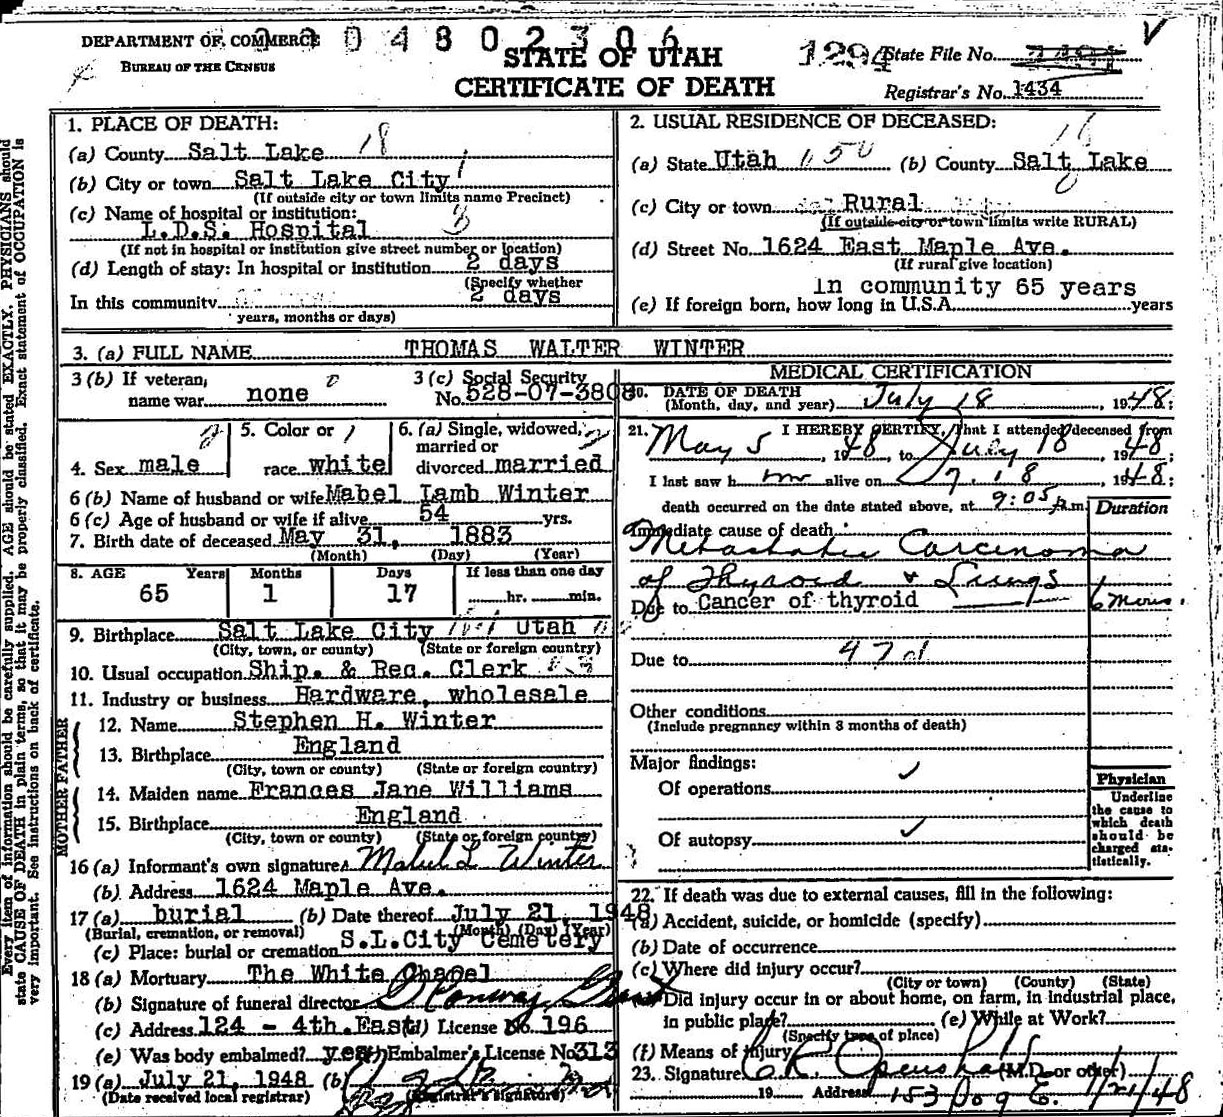 DEPARTMENT OF COMMERCE
BUREAU OF THE CENSUS
04802306
STATE OF UTAH
CERTIFICATE OF DEATH
1294 State File No.
Registrar's No. 1434
Every item of information should be carefully supplied. AGE should be stated EXACTLY. PHYSICIANS should
state CAUSE OF DEATH in plain terms, so that it may be properly classified. Exact statement of OCCUPATION is
very important. See instructions on back of certificate.
1. PLACE OF DEATH:
(a) County Salt Lake 18
(b) City or town Salt Lake City 1
(If outside city or town limits name Precinct)
(c) Name of hospital or institution:
L.D.S. Hospital 3
(If not in hospital or institution give street number or location)
(d) Length of stay: In hospital or institution 2 days
(Specify whether
In this community 2 days
years, months or days)
2. USUAL RESIDENCE OF DECEASED:
(a) State Utah 050 (b) County Salt Lake
(c) City or town Rural
(If outside city or town limits write RURAL)
(d) Street No. 1624 East Maple Ave.
(If rural give location)
In community 65 years
(e) If foreign born, how long in U.S.A. years
3. (a) FULL NAME THOMAS WALTER WINTER
3 (b) If veteran, name war none
3 (c) Social Security No. 528-07-3808
4. Sex male
5. Color or race white
6. (a) Single, widowed, married or divorced married
6 (b) Name of husband or wife Mabel Lamb Winter
6 (c) Age of husband or wife if alive 54 yrs.
7. Birth date of deceased May 31, 1883
(Month) (Day) (Year)
8. AGE Years Months Days If less than one day
65 1 17 hr. min.
9. Birthplace Salt Lake City Utah
(City, town, or county) (State or foreign country)
10. Usual occupation Ship. & Rec. Clerk
11. Industry or business Hardware, wholesale
FATHER
12. Name Stephen H. Winter
13. Birthplace England
(City, town or county) (State or foreign country)
MOTHER
14. Maiden name Frances Jane Williams
15. Birthplace England
(City, town or county) (State or foreign country)
16 (a) Informant's own signature Mabel L Winter
(b) Address 1624 Maple Ave.
17 (a) burial (b) Date thereof July 21, 1948
(Burial, cremation, or removal) (Month) (Day) (Year)
(c) Place: burial or cremation S.L.City Cemetery
18 (a) Mortuary The White Chapel
(b) Signature of funeral director
(c) Address 124 - 4th.East (d) License No. 196
(e) Was body embalmed? yes Embalmer's License No 313
19 (a) July 21, 1948 (b)
(Date received local registrar) (Registrar's signature)
MEDICAL CERTIFICATION
20. DATE OF DEATH
(Month, day, and year) July 18, 1948;
21. I HEREBY CERTIFY, That I attended deceased from
May 5, 1948, to July 18 1948;
I last saw him alive on 7.18 1948;
death occurred on the date stated above, at 9:05 p.m.
Duration
Immediate cause of death:
Metastatic Carcinoma
of Thyroid & Lungs
Due to Cancer of thyroid 6 mons.
Due to 47d
Other conditions
(Include pregnancy within 3 months of death)
Major findings:
Of operations ✓
Of autopsy ✓
Physician
Underline
the cause to
which death
should be
charged sta-
tistically.
22. If death was due to external causes, fill in the following:
(a) Accident, suicide, or homicide (specify)
(b) Date of occurrence
(c) Where did injury occur?
(City or town) (County) (State)
Did injury occur in or about home, on farm, in industrial place,
in public place? (e) While at Work?
(Specify type of place)
(f) Means of injury
23. Signature (M.D. or other)
19 Address 1/21/48